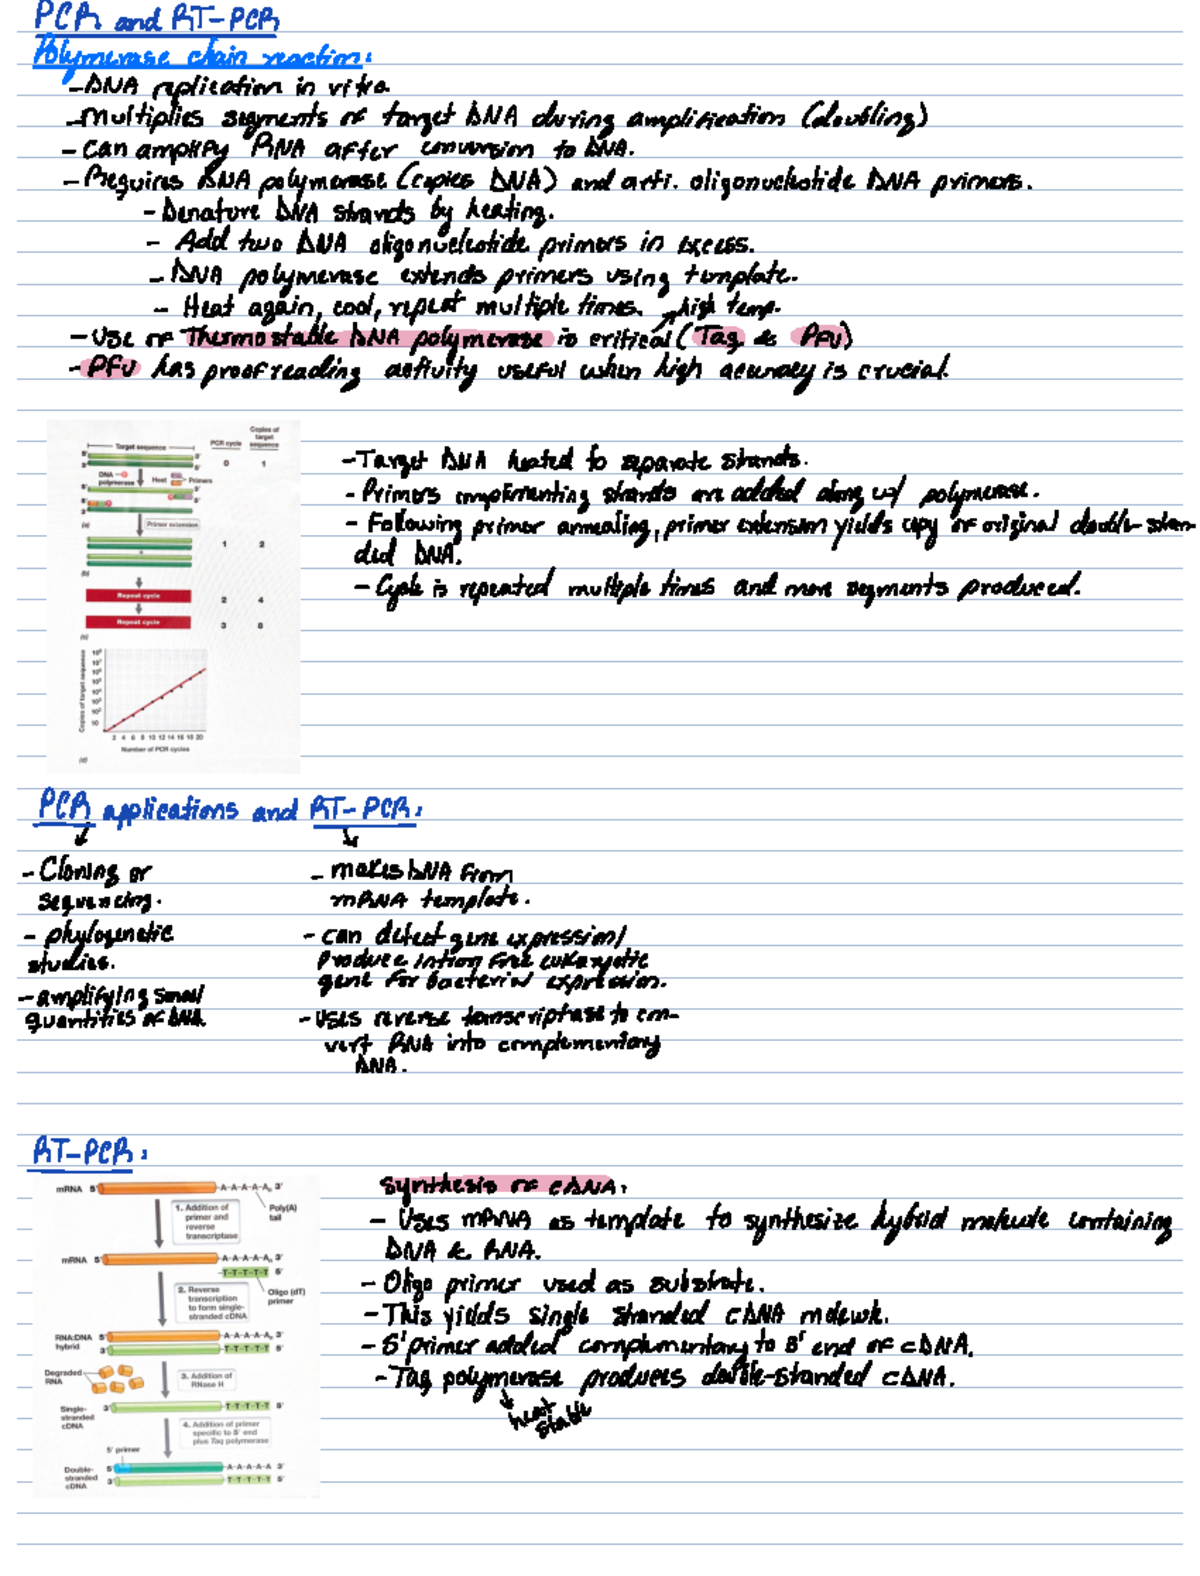 PCR and RT-PCR
Polymerase chain reaction:
-DNA replication in vitro
-Multiplies segments of target DNA during amplification (doubling)
- Can amplify RNA after conversion to DNA.
- Requires DNA polymerase (copies DNA) and arti. oligonucleotide DNA primers.
- Denature DNA strands by heating.
- Add two DNA oligonucleotide primers in excess.
- DNA polymerase extends primers using template.
- Heat again, cool, repeat multiple times.
high temp.
- Use of Thermostable DNA polymerase is critical (Taq & PFU)
- PFU has proofreading activity useful when high accuracy is crucial.
Target sequence
PCR cycle
Copies of target sequence
5' 3'
3' 5'
0 1
DNA polymerase
Heat
Primers
(a)
Primer extension
1 2
(b)
Repeat cycle
2 4
Repeat cycle
3 8
(c)
Copies of target sequence
10
2 4 6 8 10 12 14 16 18 20
Number of PCR cycles
(d)
-Target DNA heated to separate strands.
- Primers complimenting strands are added along w/ polymerase.
- Following primer annealing, primer extension yields copy of original double-stran-
ded DNA.
- Cycle is repeated multiple times and more segments produced.
PCR applications and RT-PCR:
- Cloning or
sequencing.
- phylogenetic
studies.
- amplifying small
quantities of DNA.
- makes DNA from
mRNA template.
- can detect gene expression/
Produce intron free eukaryotic
gene for bacterial expression.
- uses reverse transcriptase to con-
vert RNA into complementary
DNA.
RT-PCR:
mRNA 5' A-A-A-A-Aₙ 3'
Poly(A) tail
1. Addition of primer and reverse transcriptase
mRNA 5' A-A-A-A-Aₙ 3'
T-T-T-T-T 5'
Oligo (dT) primer
2. Reverse transcription to form single-stranded cDNA
RNA:DNA hybrid
5' A-A-A-A-Aₙ 3'
3' T-T-T-T-T 5'
Degraded RNA
3. Addition of RNase H
Single-stranded cDNA
3' T-T-T-T-T 5'
4. Addition of primer specific to 5' end plus Taq polymerase
5' primer
Double-stranded cDNA
5' A-A-A-A-A 3'
3' T-T-T-T-T 5'
Synthesis of cDNA:
- Uses mRNA as template to synthesize hybrid molecule containing
DNA & RNA.
- Oligo primer used as substrate.
- This yields single stranded cDNA molecule.
- 5' primer added complimentary to 3' end of cDNA.
- Taq polymerase produces double-stranded cDNA.
heat
stable